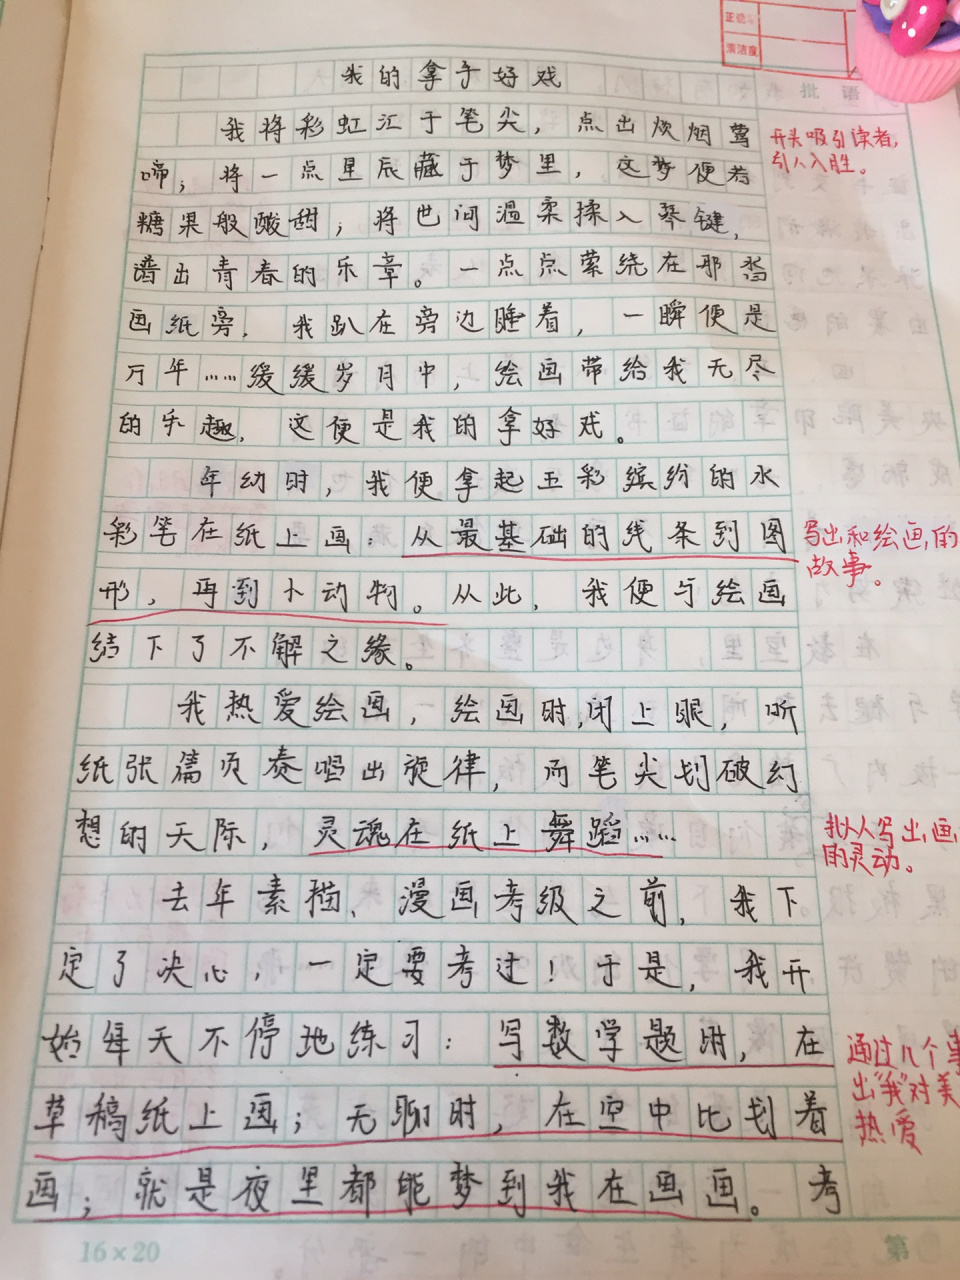 我的拿手好戏
我将彩虹汇于笔尖，点出炊烟莺
啼；将一点星辰藏于梦里，这梦便若
糖果般酸甜；将世间温柔揉入琴键，
谱出青春的乐章。一点点萦绕在那
画纸旁，我趴在旁边睡着，一瞬便是
万年……缓缓岁月中，绘画带给我无尽
的乐趣，这便是我的拿好戏。
年幼时，我便拿起五彩缤纷的水
彩笔在纸上画：从最基础的线条到图
形，再到小动物。从此，我便与绘画
结下了不解之缘。
我热爱绘画，绘画时，闭上眼，听
纸张篇页奏唱出旋律，而笔尖划破幻
想的天际，灵魂在纸上舞蹈……
去年素描、漫画考级之前，我下
定了决心，一定要考过！于是，我开
始每天不停地练习：写数学题时，在
草稿纸上画；无聊时，在空中比划着
画；就是夜里都能梦到我在画画。考
16×20
第
正确率
清洁度
批语
开头吸引读者，
引人入胜。
写出和绘画的
故事。
拟人写出画
的灵动。
通过几个事
出“我”对美
热爱